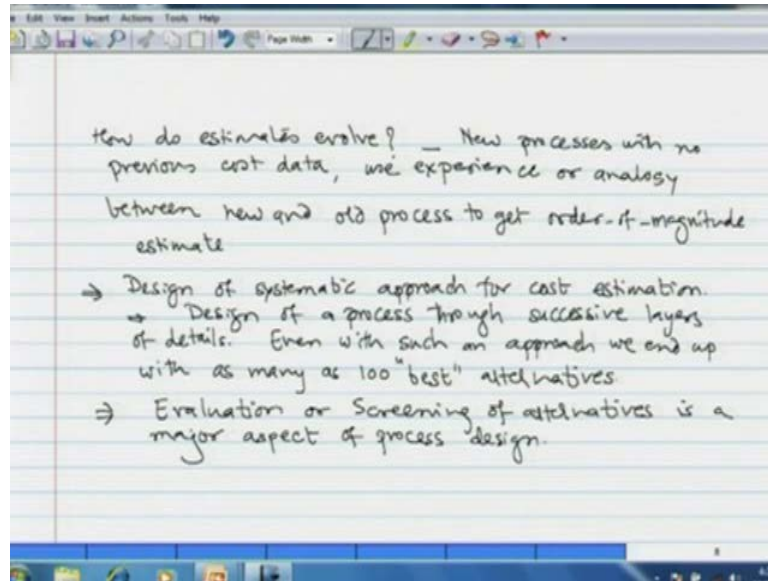 Edit View Insert Actions Tools Help
Page Width
How do estimates evolve? _ New processes with no
previous cost data, use experience or analogy
between new and old process to get order-of-magnitude
estimate
⇒ Design of systematic approach for cost estimation.
→ Design of a process through successive layers
of details. Even with such an approach we end up
with as many as 100 "best" alternatives
⇒ Evaluation or Screening of alternatives is a
major aspect of process design.
8